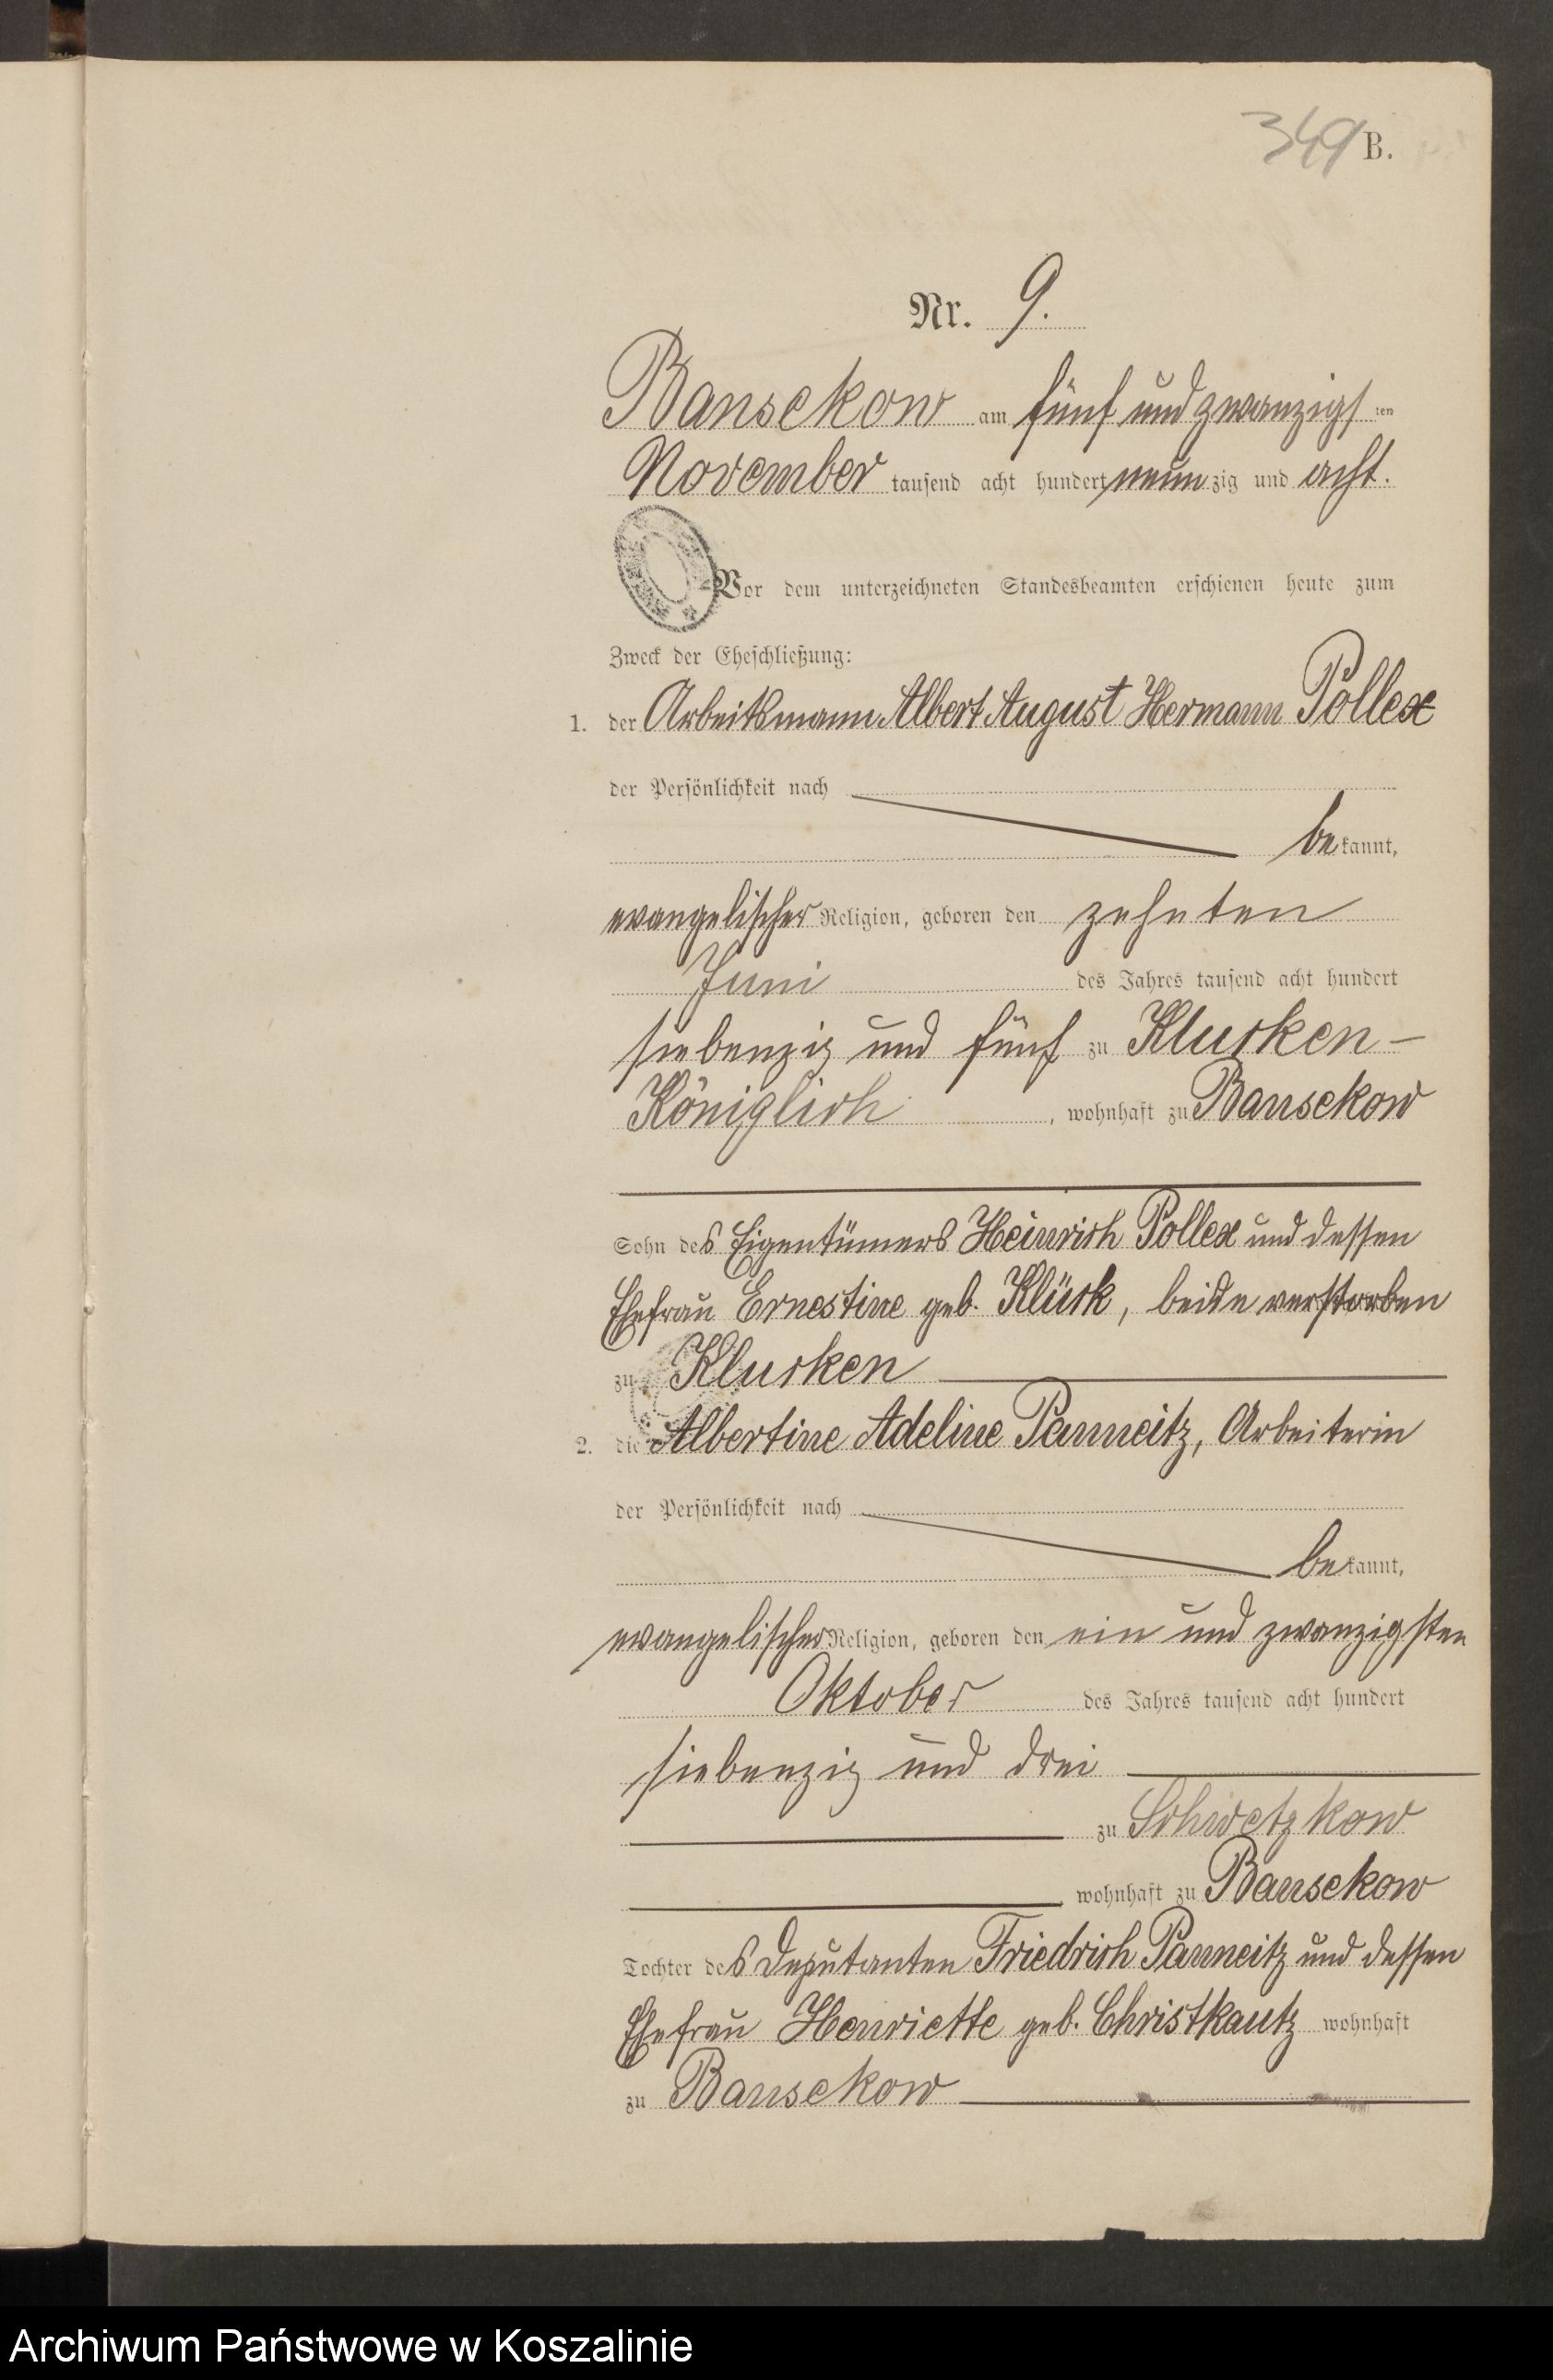 349 B.
Nr. 9.
Bansekow am fünf und zwanzigsten
November tausend acht hundert neunzig und acht.
Vor dem unterzeichneten Standesbeamten erschienen heute zum
Zweck der Eheschließung:
1. der Arbeitsmann Albert August Hermann Pollex
der Persönlichkeit nach
bekannt,
evangelischer Religion, geboren den zehnten
Juni des Jahres tausend acht hundert
siebenzig und fünf zu Klucken-
Königlich, wohnhaft zu Bansekow
Sohn des Eigentümers Heinrich Pollex und dessen
Ehefrau Ernestine geb. Klück, beide verstorben
zu Klucken
2. die Albertine Adeline Panneitz, Arbeiterin
der Persönlichkeit nach
bekannt,
evangelischer Religion, geboren den ein und zwanzigsten
Oktober des Jahres tausend acht hundert
siebenzig und drei
zu Schwetzkow
, wohnhaft zu Bansekow
Tochter des Deputanten Friedrich Panneitz und dessen
Ehefrau Henriette geb. Christkautz wohnhaft
zu Bansekow
Archiwum Państwowe w Koszalinie